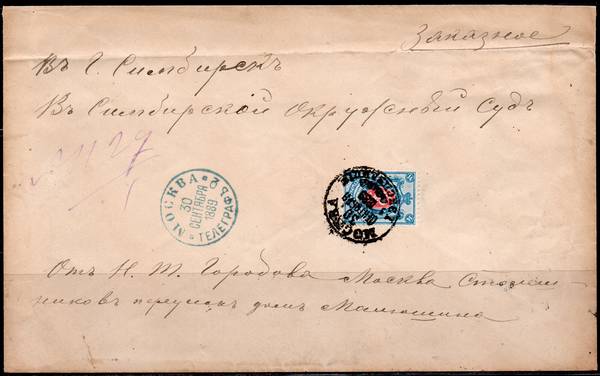 Заказное
Въ г. Симбирскъ
Въ Симбирской Окружный Судъ
№ 1127
МОСКВА
30
СЕНТЯБРЯ
1889
ТЕЛЕГРАФЪ
МОСКВА
30
Отъ Н. Т. Городова Москва Столеш
никовъ переулъ домъ Малюшина